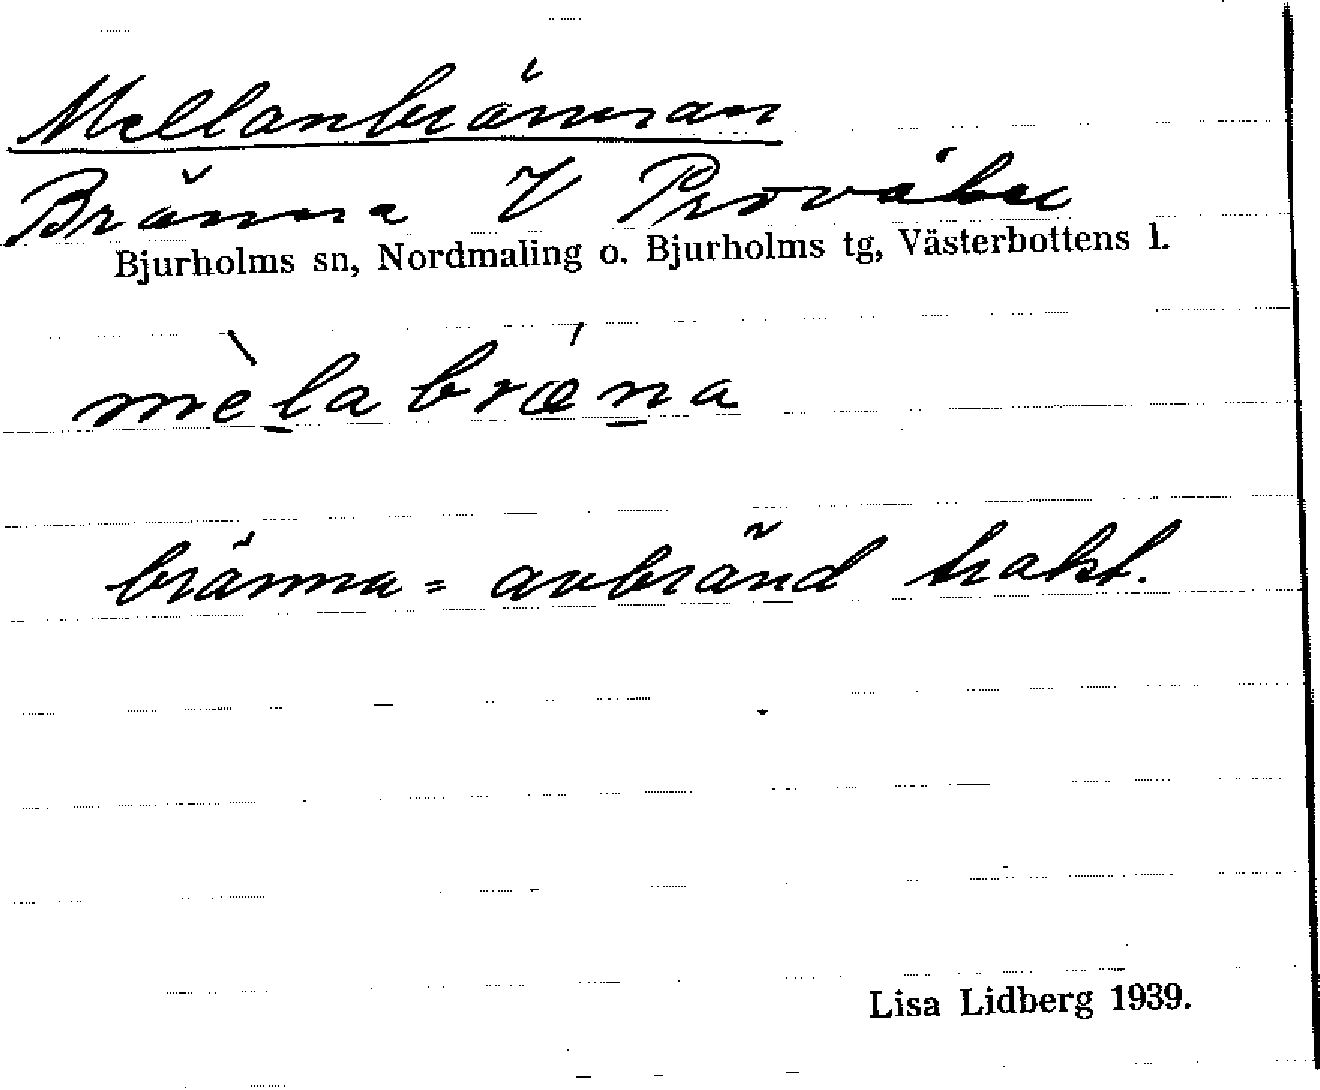 Mellanbrännan
Bränna V Provåker
Bjurholms sn, Nordmaling o. Bjurholms tg, Västerbottens l.
mèlabrǽna
bränna = avbränd trakt.
Lisa Lidberg 1939.